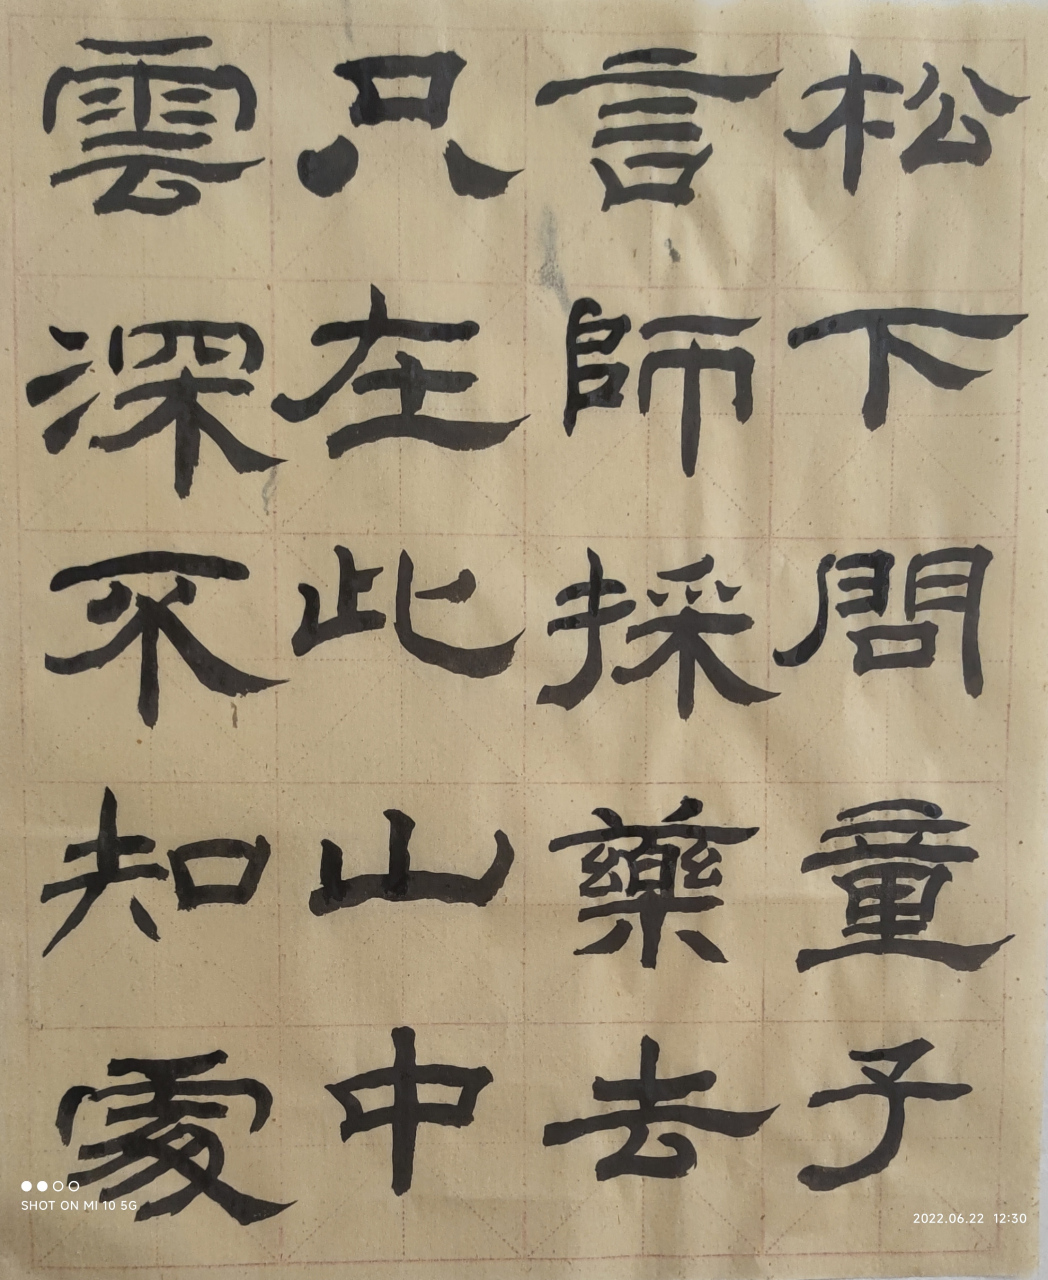 松下問童子
言師採藥去
只在此山中
雲深不知處
SHOT ON MI 10 5G
2022.06.22 12:30